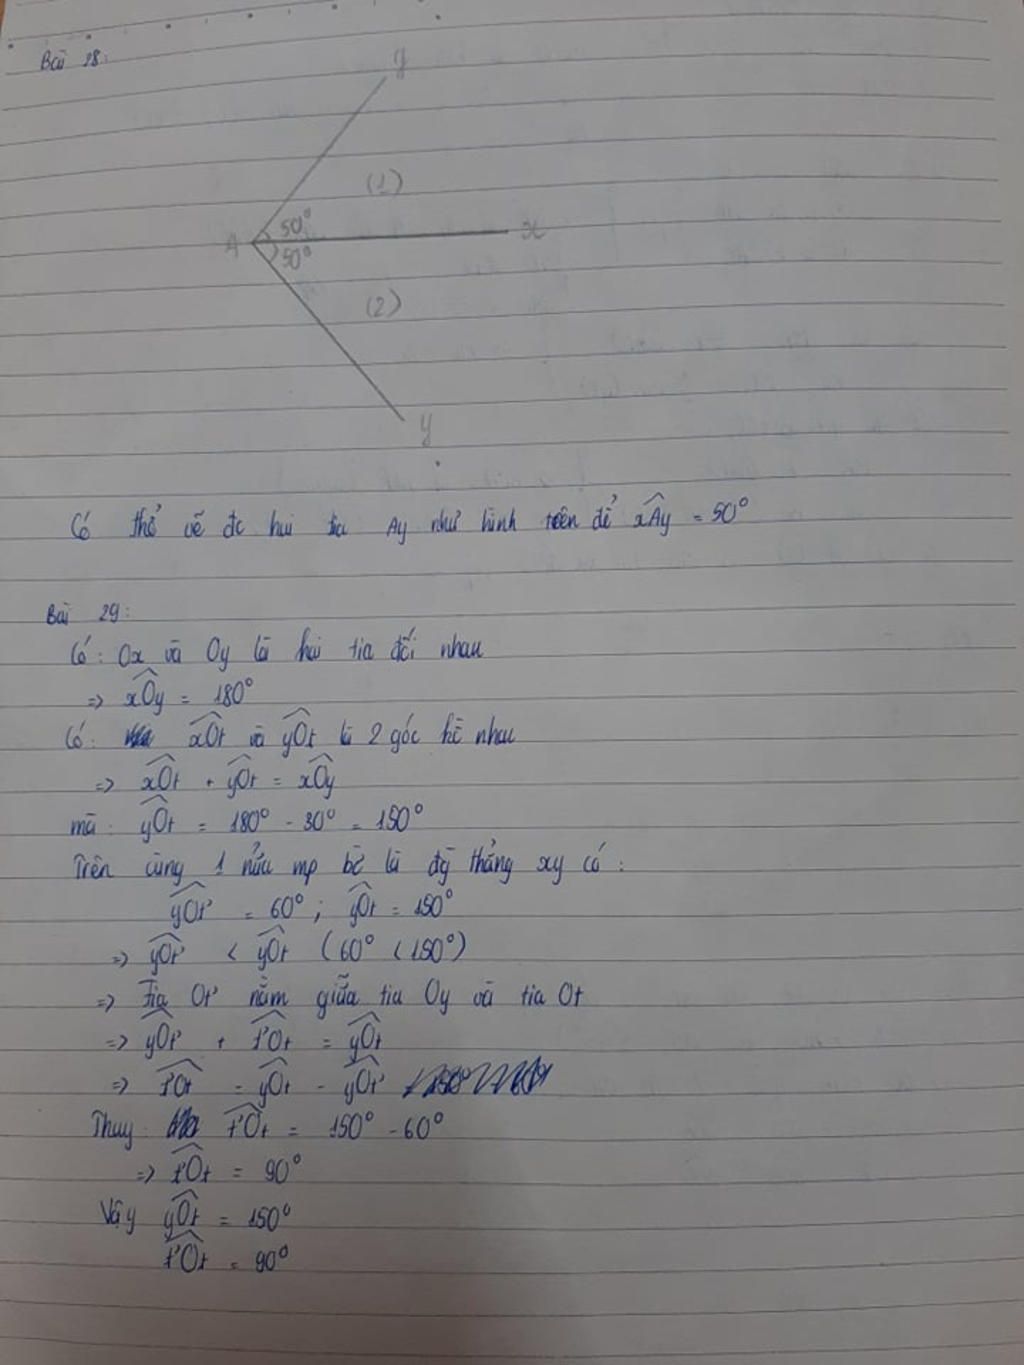 Bài 28:
y
(1)
50°
A
x
50°
(2)
y
Có thể vẽ đc hai tia Ay như hình trên để xAy = 50°
Bài 29:
Có: Ox và Oy là hai tia đối nhau
=> xOy = 180°
Có: xOt và yOt là 2 góc kề nhau
=> xOt + yOt = xOy
mà: yOt = 180° - 30° = 150°
Trên cùng 1 nửa mp bờ là đg thẳng xy có:
yOt' = 60° ; yOt = 150°
=> yOt' < yOt (60° < 150°)
=> Tia Ot' nằm giữa tia Oy và tia Ot
=> yOt' + t'Ot = yOt
=> t'Ot = yOt - yOt'
Thay: t'Ot = 150° - 60°
=> t'Ot = 90°
Vậy yOt = 150°
t'Ot = 90°